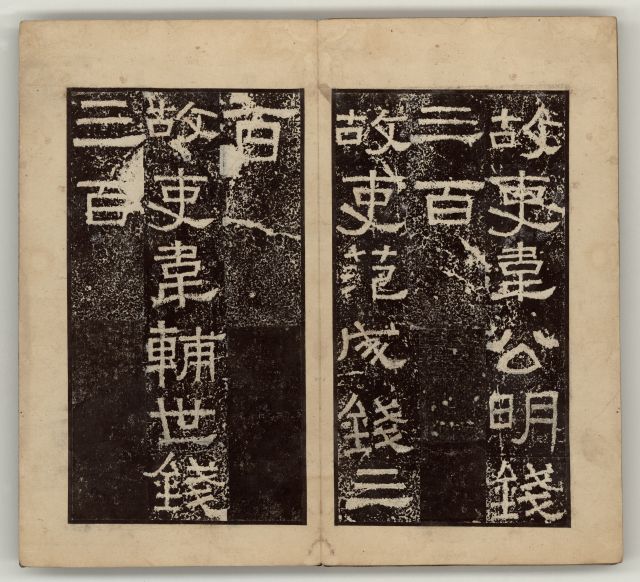 故吏韋公明錢
三百
故吏范成錢三
百
故吏韋輔世錢
三百